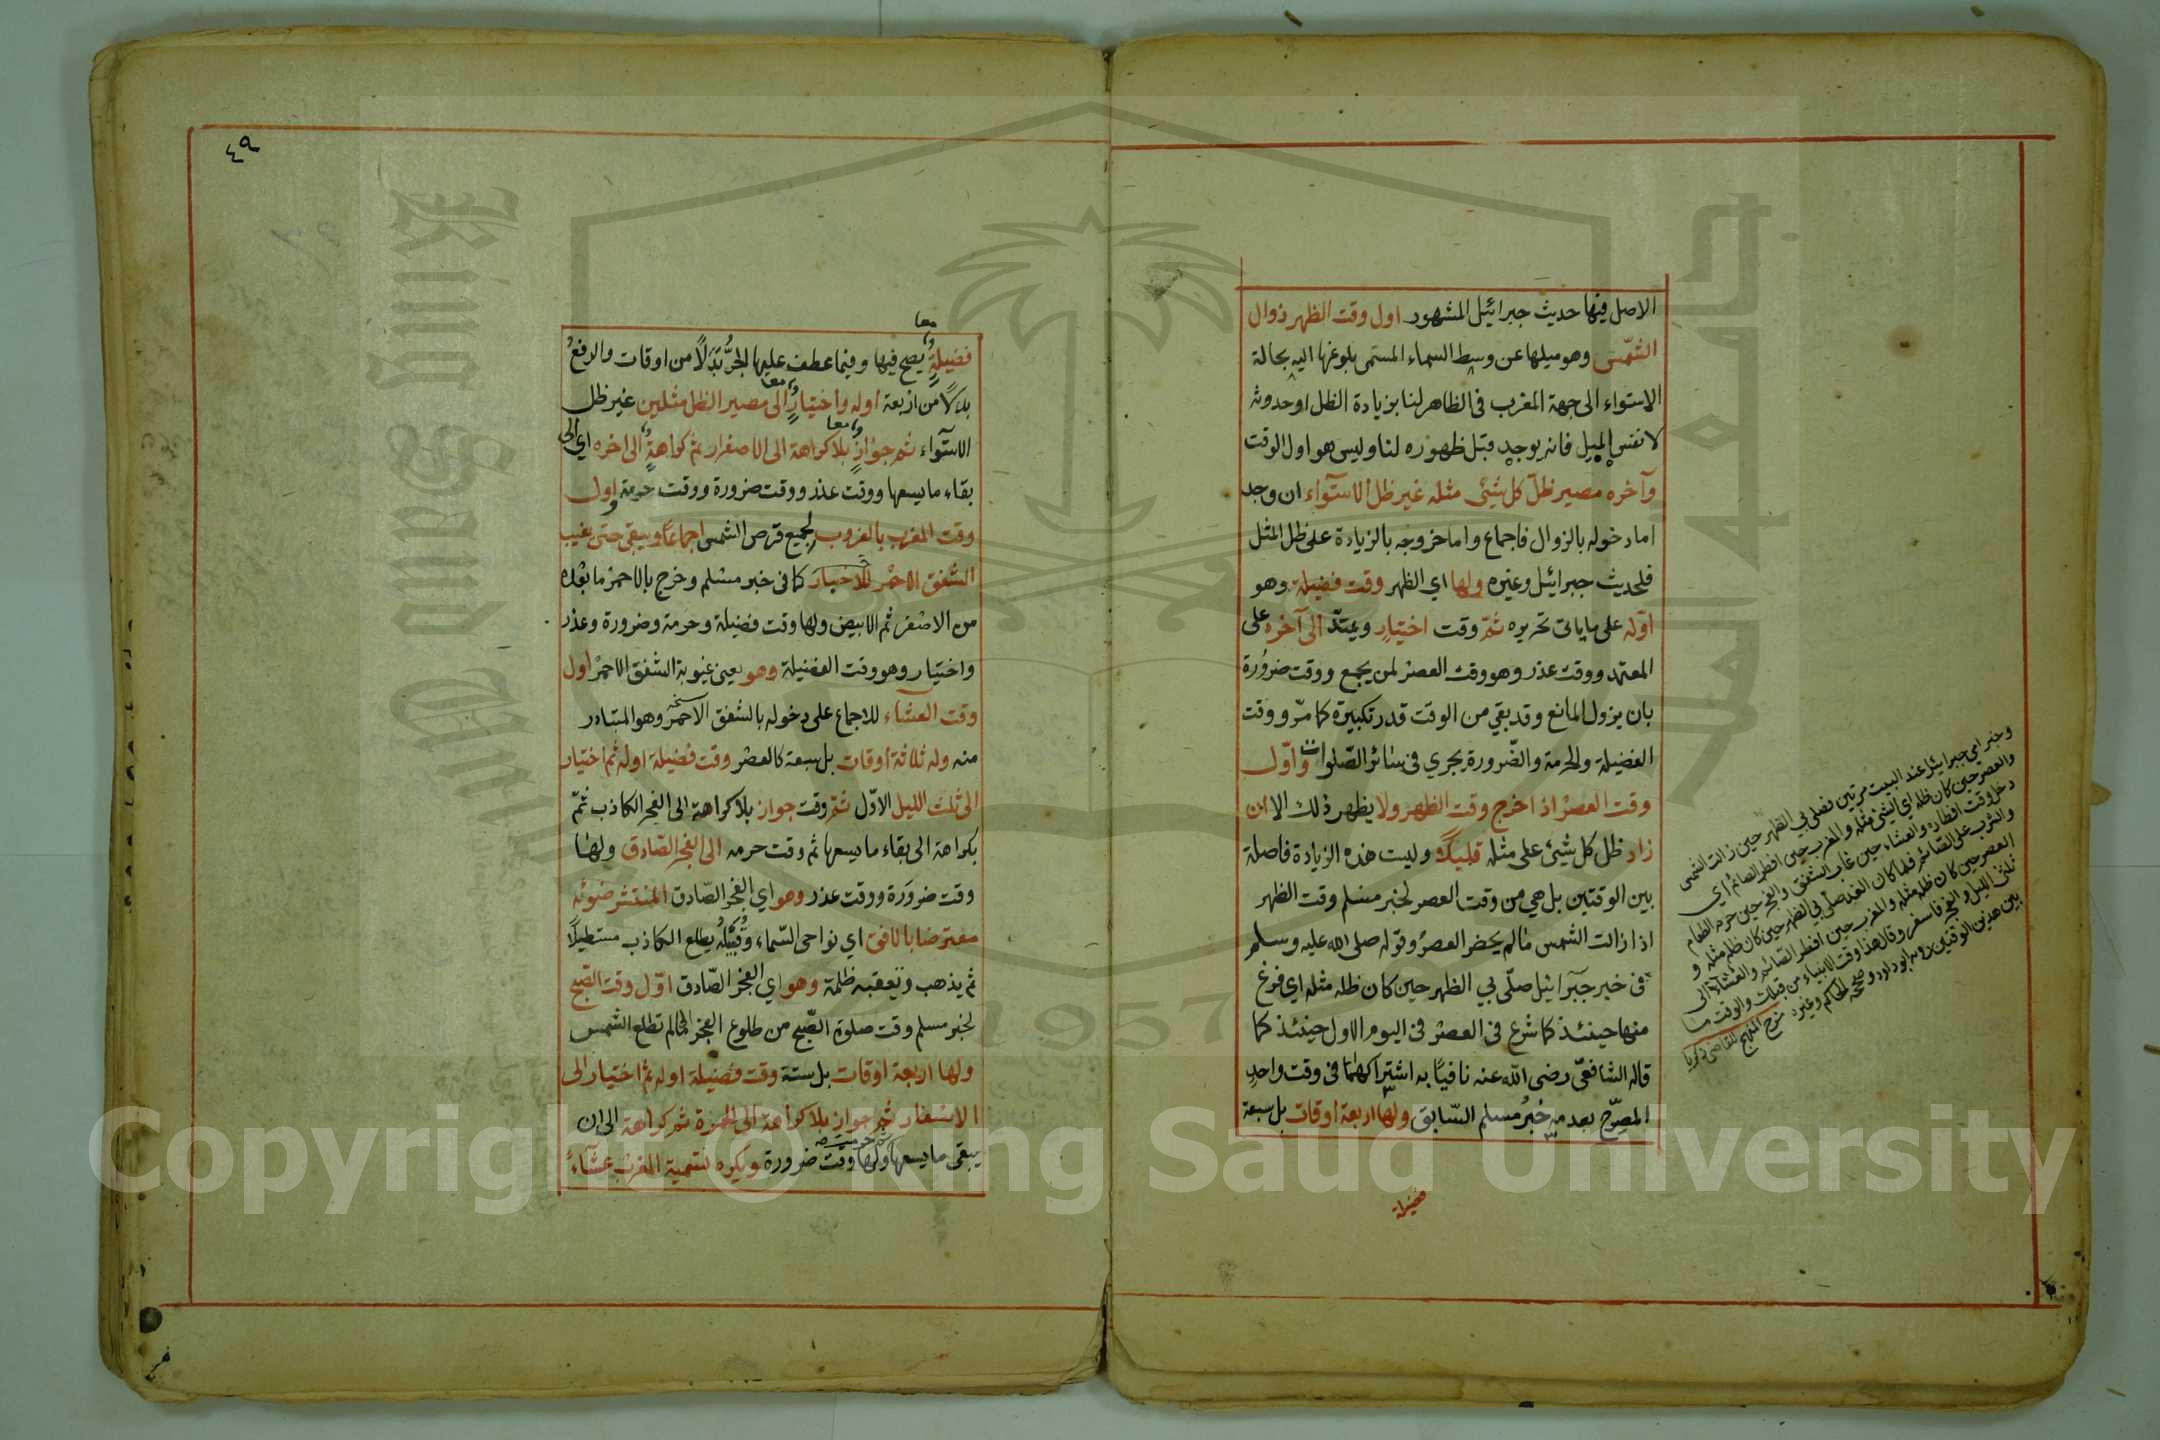 الاصل فيها حديث جبرائيل المشهور اول وقت الظهر زوال
الشمس وهو ميلها عن وسط السماء المسمى بلوغها اليه بحالة
الاستواء الى جهة المغرب في الظاهر لنا بزيادة الظل او حدوثه
لا نفس الميل فانه يوجد قبل ظهوره لنا وليس هو اول الوقت
وآخره مصير ظل كل شئ مثله غير ظل الاستواء ان وجد
اما دخوله بالزوال فاجماع واما خروجه بالزيادة على ظل المثل
فلحديث جبرائيل وغيره ولها اي الظهر وقت فضيلة وهو
اوله على ما ياتي تحريره ثم وقت اختيار ويمتد الى آخره على
المعتمد ووقت عذر وهو وقت العصر لمن يجمع ووقت ضرورة
بان يزول المانع وقد بقي من الوقت قدر تكبيرة كما مر ووقت
الفضيلة والحرمة والضرورة يجري في سائر الصلوات واول
وقت العصر اذا خرج وقت الظهر ولا يظهر ذلك الا ان
زاد ظل كل شئ على مثله قليلا وليست هذه الزيادة فاصلة
بين الوقتين بل هي من وقت العصر لخبر مسلم وقت الظهر
اذا زالت الشمس مالم يحضر العصر وقوله صلى الله عليه وسلم
في خبر جبرائيل صلى بي الظهر حين كان ظله مثله اي فرغ
منها حينئذ كما شرع في العصر في اليوم الاول حينئذ كما
قاله الشافعي رضى الله عنه نافيا به اشتراكهما في وقت واحد
المصرح بعدمه خبر مسلم السابق ولها اربعة اوقات بل سبعة
فضيلة
وخبر امني جبرائيل عند البيت مرتين فصلى بي الظهر حين زالت الشمس
والعصر حين كان ظله اي الشئ مثله والمغرب حين افطر الصائم اي
دخل وقت افطاره والعشاء حين غاب الشفق والفجر حين حرم الطعام
والشرب على الصائم فلما كان الغد صلى بي الظهر حين كان ظله مثله و
العصر حين كان ظله مثليه والمغرب حين افطر الصائم والعشاء الى
ثلث الليل والفجر فاسفر وقال هذا وقت الانبياء من قبلك والوقت ما
بين هذين الوقتين رواه ابو داود وصححه الحاكم وغيره شرح المنهج للقاضي زكريا
٤٩
معا
فضيلة يصح فيها وفيما عطف عليها الجر بدلا من اوقات والرفع
بدلا من اربعة اوله واختيار الى مصير الظل مثلين غير ظل
معا
الاستواء ثم جواز بلا كراهة الى الاصفرار ثم كراهة الى اخره اي الى
معا
بقاء ما يسعها ووقت عذر ووقت ضرورة ووقت حرمة واول
وقت المغرب بالغروب لجميع قرص الشمس اجماعا ويبقى حتى يغيب
الشفق الاحمر للاخبار كما في خبر مسلم وخرج بالاحمر ما بعده
من الاصفر ثم الابيض ولها وقت فضيلة وحرمة وضرورة وعذر
واختيار وهو وقت الفضيلة وهو يعني غيوبة الشفق الاحمر اول
وقت العشاء للاجماع على دخوله بالشفق الاحمر وهو المتبادر
منه وله ثلاثة اوقات بل سبعة كالعصر وقت فضيلة اوله ثم اختيار
الى ثلث الليل الاول ثم وقت جواز بلا كراهة الى الفجر الكاذب ثم
بكراهة الى بقاء ما يسعها ثم وقت حرمه الى الفجر الصادق ولها
وقت ضرورة ووقت عذر وهو اي الفجر الصادق المنتشر ضوئه
معترضا بالافق اي نواحى السماء وقبيله يطلع الكاذب مستطيلا
ثم يذهب وتعقبه ظلمة وهو اي الفجر الصادق اول وقت الصبح
لخبر مسلم وقت صلوة الصبح من طلوع الفجر مالم تطلع الشمس
ولها اربعة اوقات بل ستة وقت فضيلة اوله ثم اختيار الى
الاسفار ثم جواز بلا كراهة الى الحمرة ثم كراهة الى ان
يبقى ما يسعها ولها وقت ضرورة ويكره تسمية المغرب عشاء
King Saud University
1957
Copyright © King Saud University